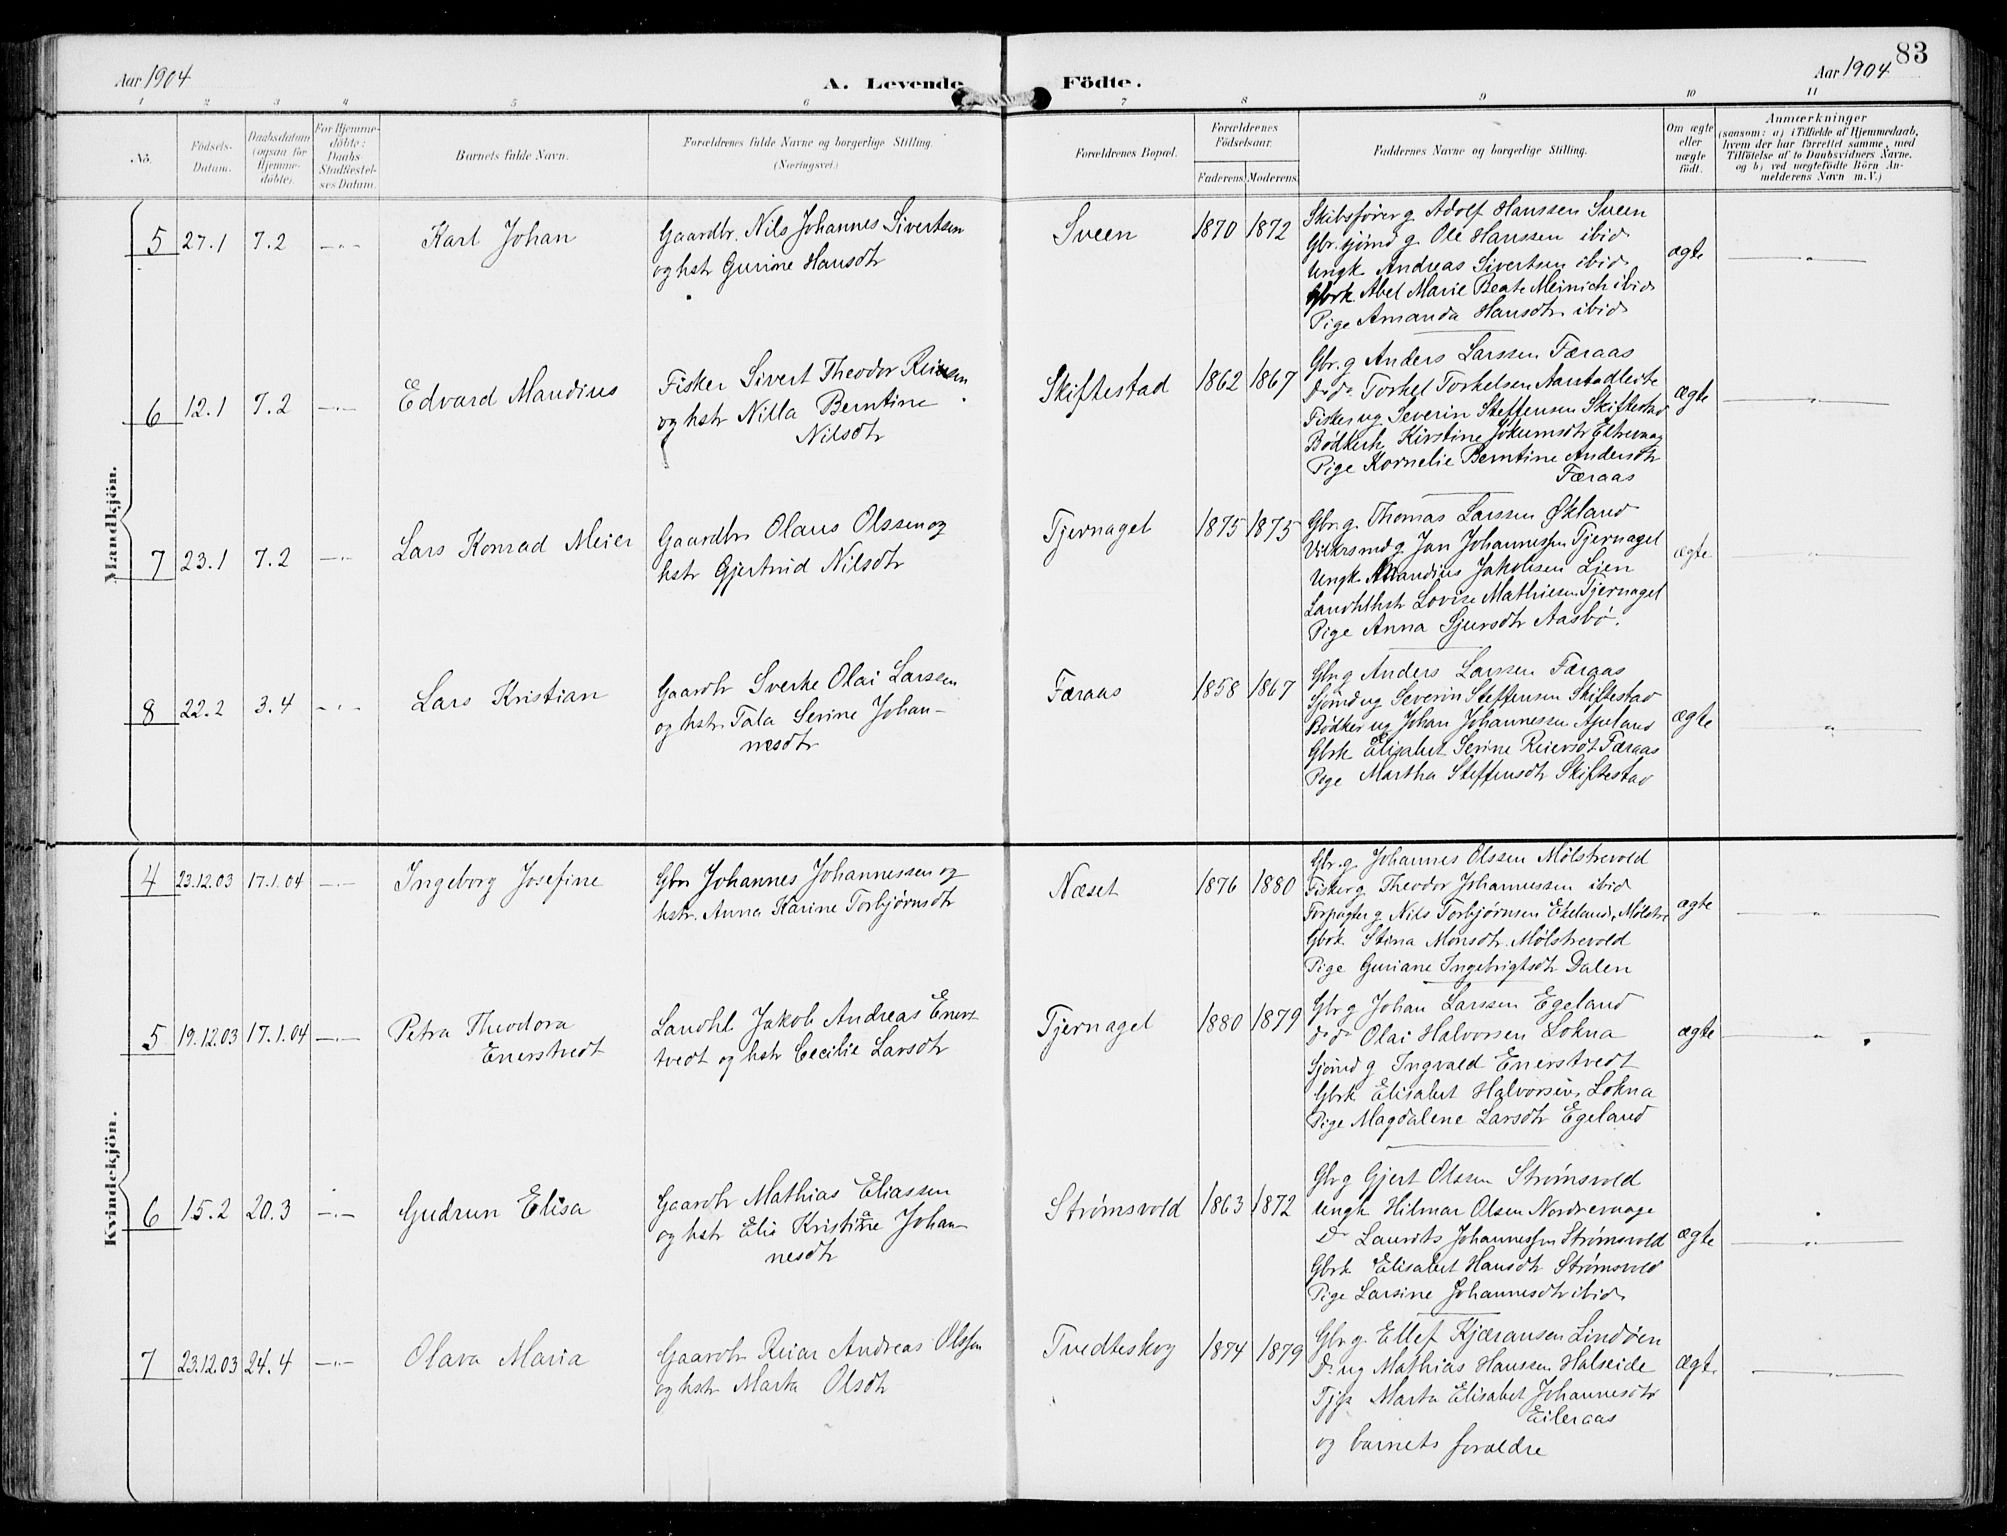 Aar 1904
A. Levende Födte.
Aar 1904
83
1 2 3 4 5 6 7 8 9 10 11
No.
Födsels-Datum.
Daabsdatum (ogsaa for Hjemme-döbte).
For Hjemme-döbte: Daabs-Stadfæstel-ses Datum.
Barnets fulde Navn.
Forældrenes fulde Navne og borgerlige Stilling. (Næringsvei.)
Forældrenes Bopæl.
Forældrenes Födselsaar.
Faderens. Moderens.
Faddernes Navne og borgerlige Stilling.
Om ægte eller uægte födt.
Anmærkninger
(saasom: a) i Tilfælde af Hjemmedaab, hvem der har forrettet samme, med Tilföielse af to Daabsvidners Navne, og b) ved uægtefödte Börn Anmelderens Navn m.V.)
Mandkjön.
5 27.1 7.2 —"— Karl Johan
Gaardbr. Nils Johannes Sivertsen
og hstr Gurine Hansdtr
Sveen 1870 1872
Skibsfører g. Adolf Hanssen Sveen
Gbr. sjømd g. Ole Hanssen ibid.
Ungk. Andreas Sivertsen ibid.
Gbrk Abel Marie Beate Meinich ibid
Pige Amanda Hansdtr ibid.
ægte —"—
6 12.1 7.2 —"— Edvard Mandius
Fisker Sivert Theodor
og hstr Nilla Berntine
Nilsdtr
Skiftestad 1862 1867
Gbr. g Anders Larssen Færaas
Do do Torkel Torkelsen Aarstadleite
Fisker ug Severin Steffensen Skiftestad
Bødkerk Kirstine
Pige Kornelie Berntine Andersdtr
Færaas
ægte —"—
7 23.1 7.2 —"— Lars Konrad Meier
Gaardbr Olaus Olssen og
hstr Gjertrud Nilsdtr
Tjernagel 1875 1875
Gbr. g. Thomas Larssen Økland
g Jan Johannessen Tjernagel
Ungk. Amandius Jakobsen Lien
Landhlhstr Lovise Mathiesen Tjernagel
Pige Anna Sjursdtr Aasbø.
ægte —"—
8 22.2 3.4 —"— Lars Kristian
Gaardbr Sverke Olai Larssen
og hstr Tala Serine Johan-
nesdtr
Færaas 1858 1867
Gbr g Anders Larssen Færaas
Sjømd ug Severin Steffensen Skiftestad
Bødker ug Johan Johannessen Apeland
Gbrk Elisabet Serine Reiersdt Færaas
Pige Martha Steffensdtr Skiftestad
ægte —"—
Kvindekjön.
4 23.12.03 17.1.04 —"— Ingeborg Josefine
Gbr Johannes Johannessen og
hstr. Anna Karine Torbjørnsdtr
Næset 1876 1880
Gbr. g. Johannes Olssen Mølstrevold
Fisker g Theodor Johannessen ibid
Forpagter g Nils Torbjørnsen Ekeland, Mølstre
Gbrk Stina Monsdtr. Mølstrevold
Pige Guriane Ingebrigtsdtr Dalen
ægte —"—
5 19.12.03 17.1.04 —"— Petra Theodora
Enerstvedt
Landhl Jakob Andreas Enerst
tvedt og hstr Cecilie Larsdtr
Tjernagel 1880 1879
Gbr g Johan Larssen Egeland
do do Olai Halvorsen Lokna
Sjømd g Ingvald Enerstvedt
Gbrk Elisabet Halvorsen, Lokna
Pige Magdalene Larsdtr Egeland
ægte —"—
6 15.2 20.3 —"— Gudrun Elisa
Gaardbr Mathias Eliassen
og hstr Elis Kristine Johan-
nesdtr
Strømsvold 1863 1872
Gbr g Gjert Olssen Strømsvold
Ungk Hilmar Olsen Nordrevaage
Do Laurits Johannessen Strømsvold
Gbrk Elisabet Hansdtr Strømsvold
Pige Larsine Johannesdtr ibid.
ægte —"—
7 23.12.03 24.4 —"— Olava Maria
Gaardbr Reiar Andreas Olssen
og hstr Marta Olsdtr
Tvedteskog 1874 1879
Gbr. g. Ellef Kjæransen Lindøen
Do ug Mathias Hanssen Halseide
Tjp Marta Elisabet Johannesdtr
Eileraas
og barnets forældre
ægte —"—